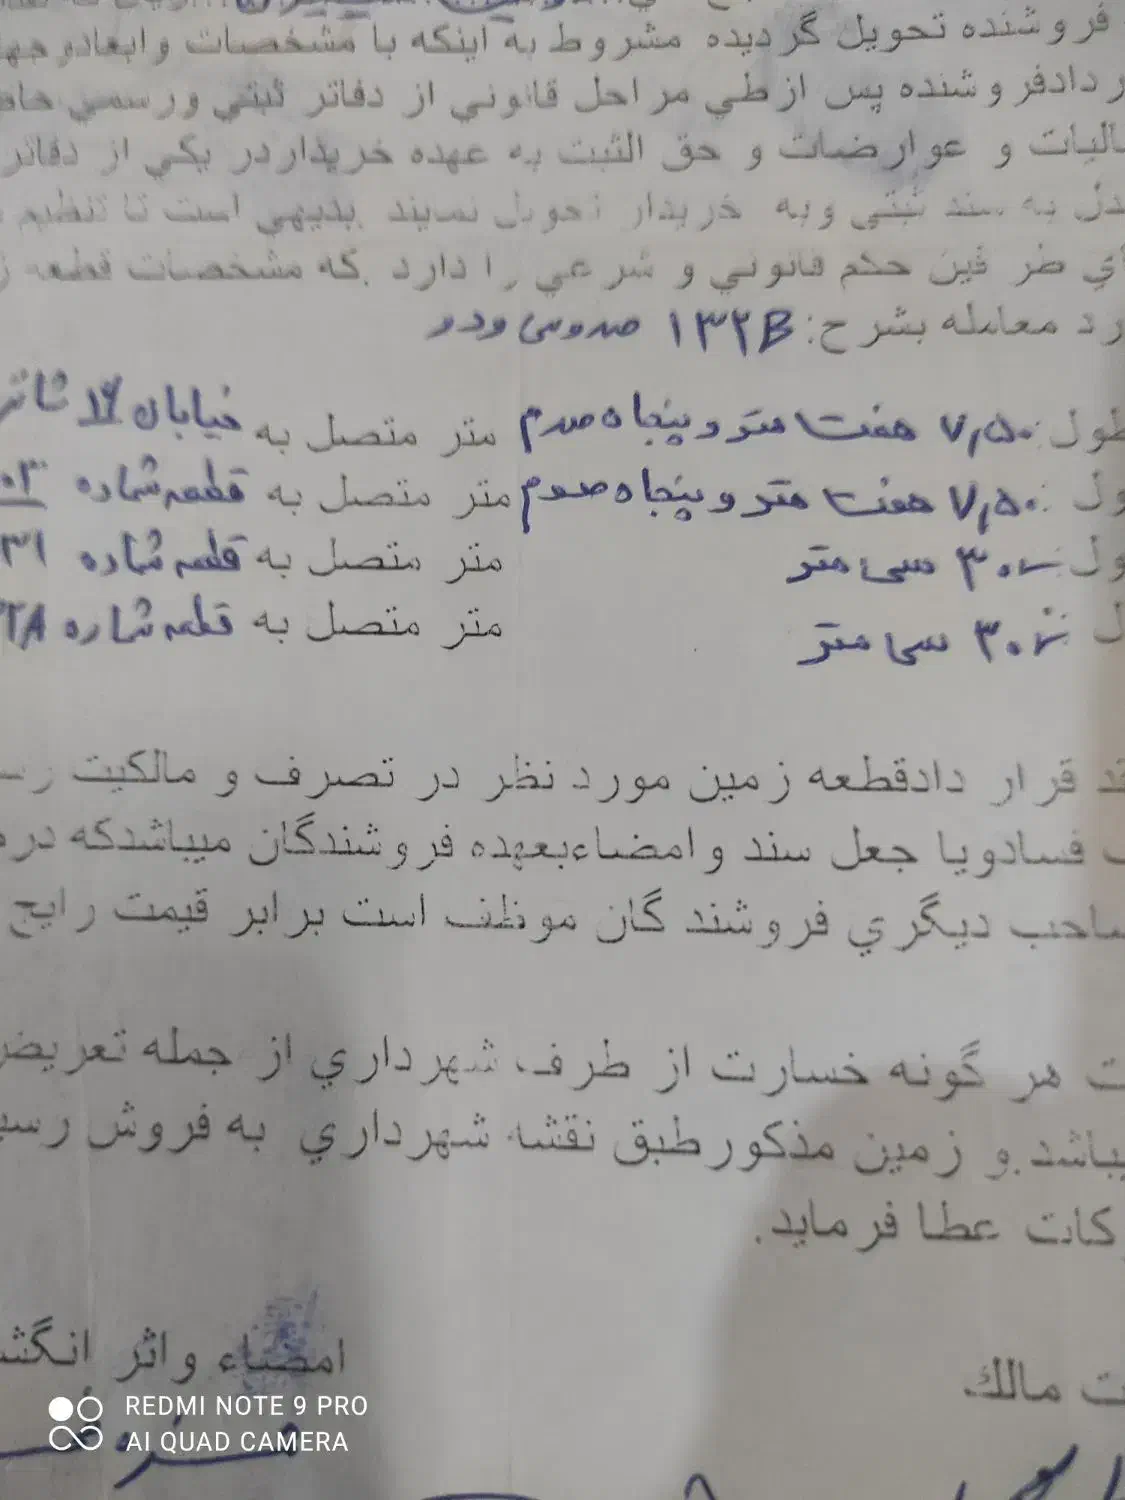 فروشنده تحويل گرديده مشروط به اينكه با مشخصات وابعادو
دادفروشنده پس ازطي مراحل قانوني از دفاتر ثبتي ورسمي
و عوارضات و حق الثبت به عهده خريداردر يكي از دفاتر
به سند ثبتي وبه خريدار تحويل نمايند .بديهي است تا تنظيم
طرفين حكم قانوني و شرعي را دارد .كه مشخصات قطعه
معامله بشرح: ۱۳۲B صدوسی ودو
طول: ۷,۵۰ هفت متر و پنجاه صدم متر متصل به خیابان ۱۶
۷,۵۰ هفت متر و پنجاه صدم متر متصل به قطعه شماره
۳۰ سی متر متر متصل به قطعه شماره
۳۰ سی متر متر متصل به قطعه شماره
قرار دادقطعه زمين مورد نظر در تصرف و مالكيت
فسادويا جعل سند وامضاءبعهده فروشندگان ميباشدكه
ديگري فروشند گان موظف است برابر قيمت رايج
هر گونه خسارت از طرف شهرداري از جمله تعريض
و زمين مذكورطبق نقشه شهرداري به فروش
عطا فرمايد.
امضاء واثر
مالك
REDMI NOTE 9 PRO
AI QUAD CAMERA